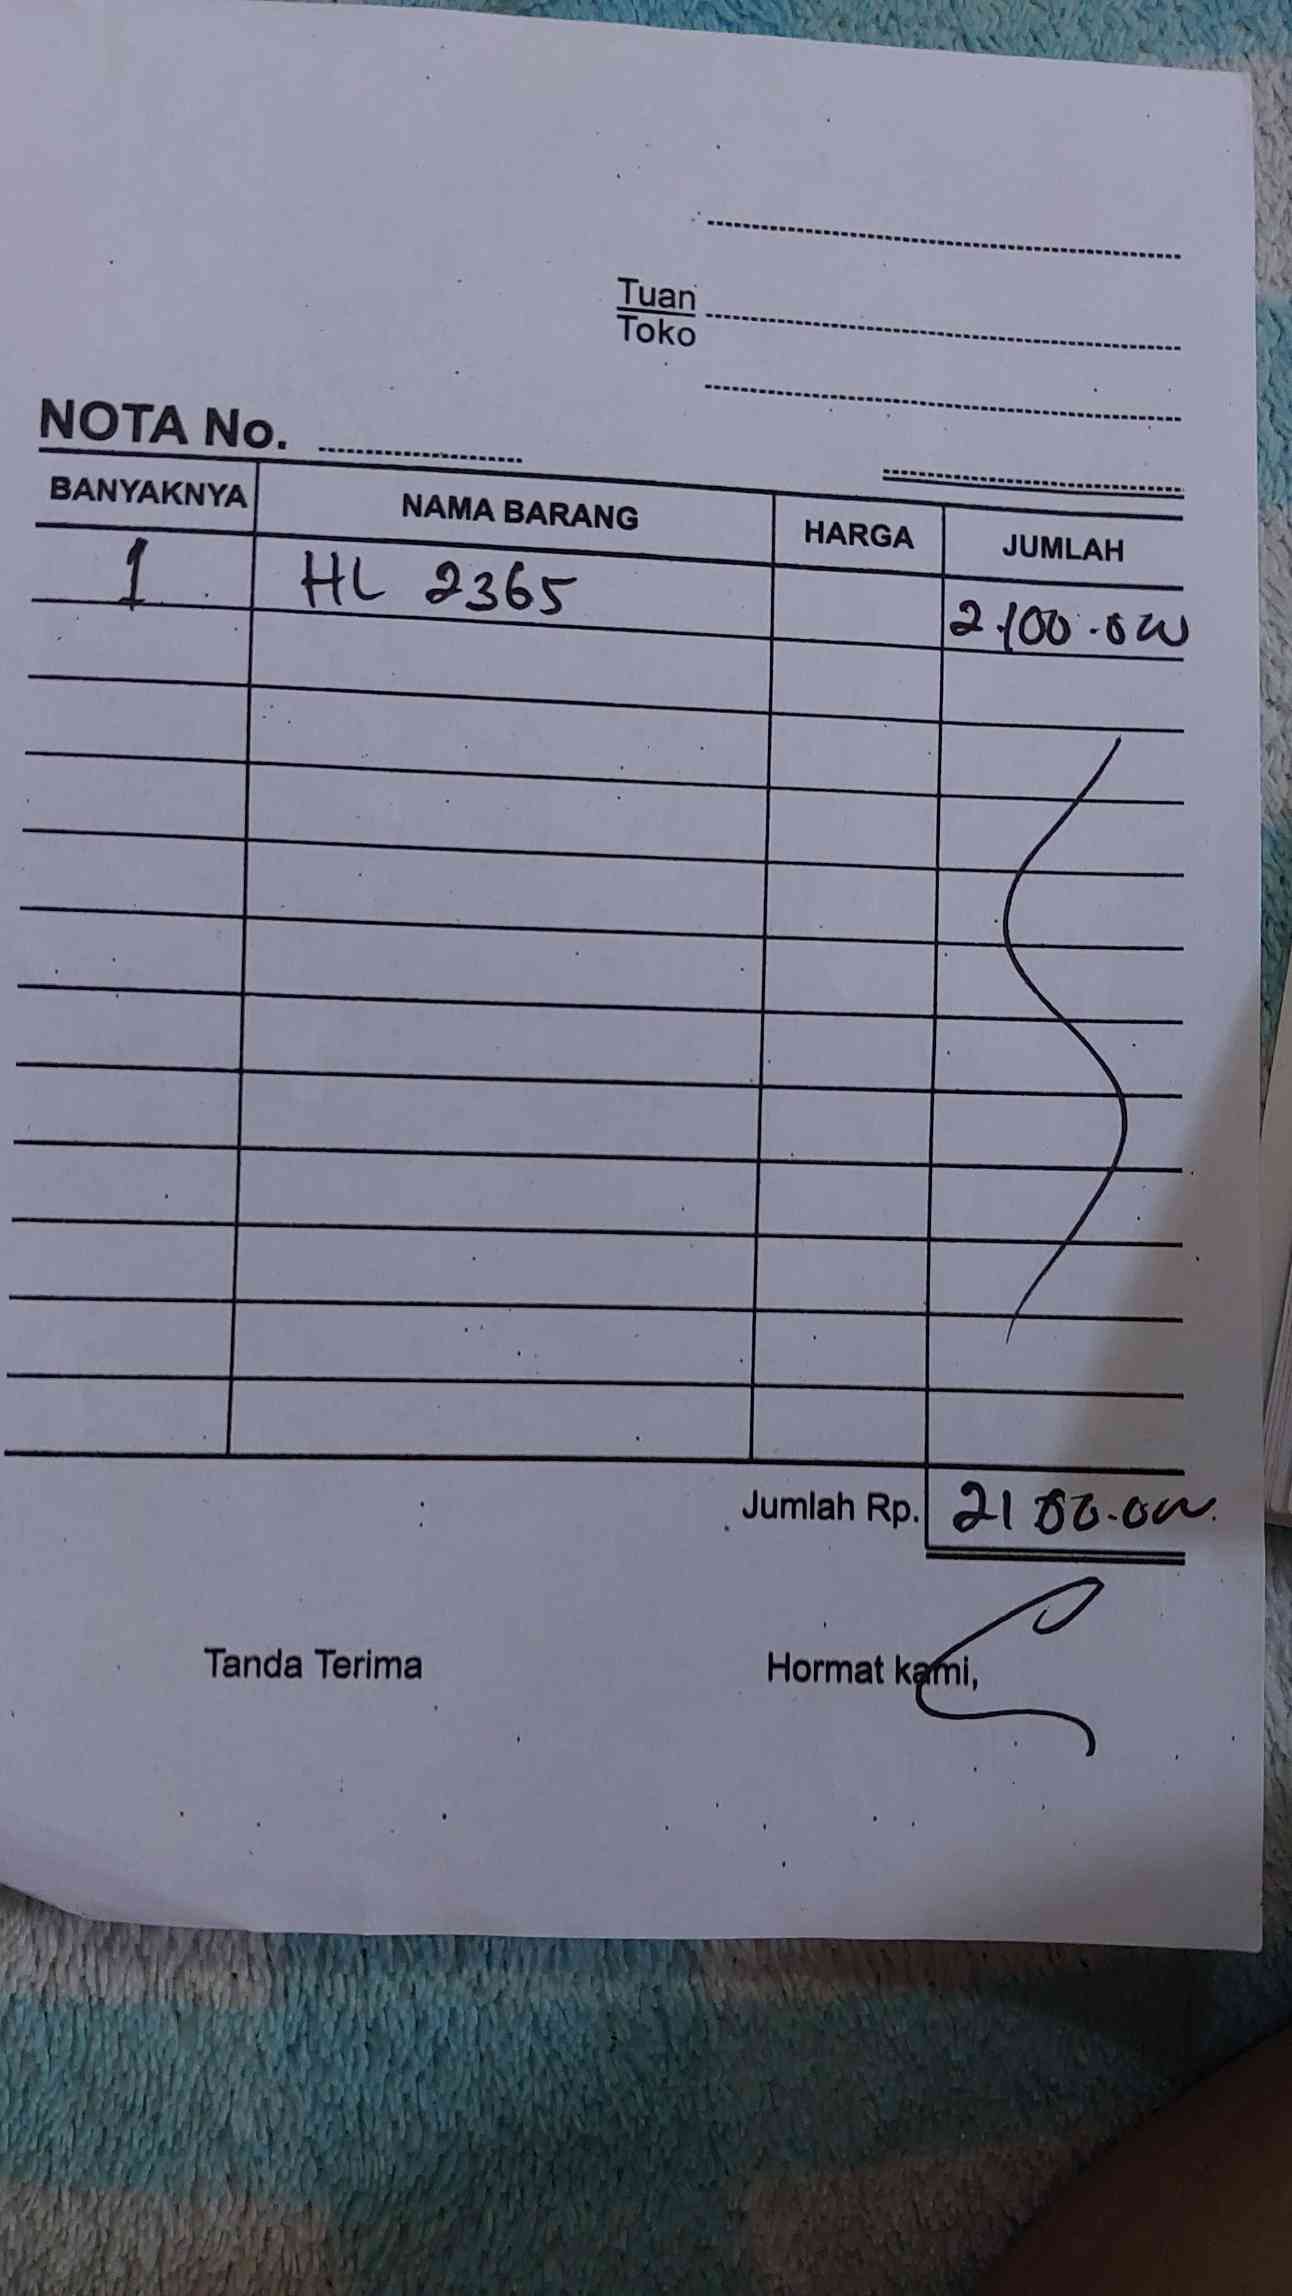 Tuan
Toko
NOTA No.
BANYAKNYA NAMA BARANG HARGA JUMLAH
1 HL 2365 2.100.000
Jumlah Rp. 2100.000.
Tanda Terima Hormat kami,